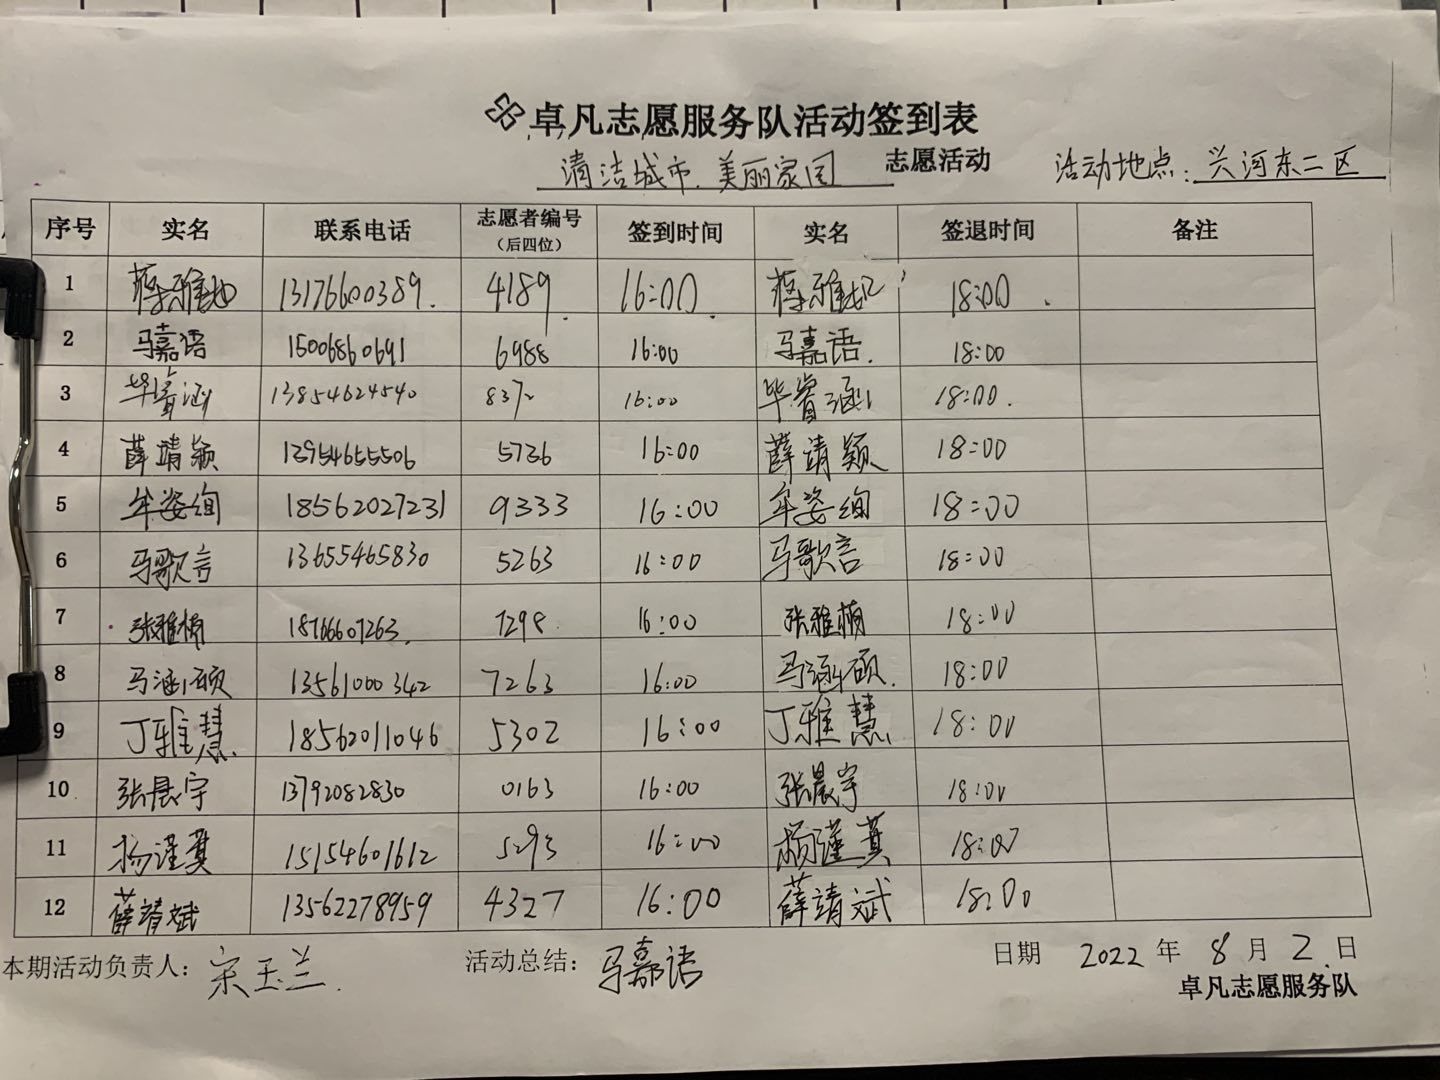 卓凡志愿服务队活动签到表
清洁城市、美丽家园 志愿活动 活动地点：兴河东二区
序号 实名 联系电话 志愿者编号（后四位） 签到时间 实名 签退时间 备注
1 蒋雅妃 13176600389 4189 16:00 蒋雅妃 18:00
2 马嘉语 15006860691 6988 16:00 马嘉语 18:00
3 毕睿涵 13854624540 837 16:00 毕睿涵 18:00
4 薛靖颖 5736 16:00 薛靖颖 18:00
5 牟姿绚 18562027231 9333 16:00 牟姿绚 18:00
6 马歌言 13655465830 5263 16:00 马歌言 18:00
7 张雅楠 18766607263 7298 16:00 张雅楠 18:00
8 马涵硕 13561000342 7263 16:00 马涵硕 18:00
9 丁雅慧 18562011046 5302 16:00 丁雅慧 18:00
10 张晨宇 13792082830 0163 16:00 张晨宇 18:00
11 杨谨萁 15154601612 5293 16:00 杨谨萁 18:00
12 薛靖斌 13562278959 4327 16:00 薛靖斌 18:00
本期活动负责人：宋玉兰 活动总结：马嘉语 日期 2022 年 8 月 2 日
卓凡志愿服务队